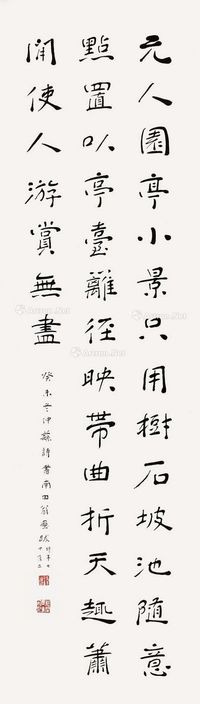 元人園亭小景只用樹石坡池隨意
點置以亭臺離徑映帶曲折天趣蕭
閒使人游賞無盡
癸未冬沖蘇詩書南田翁畫跋